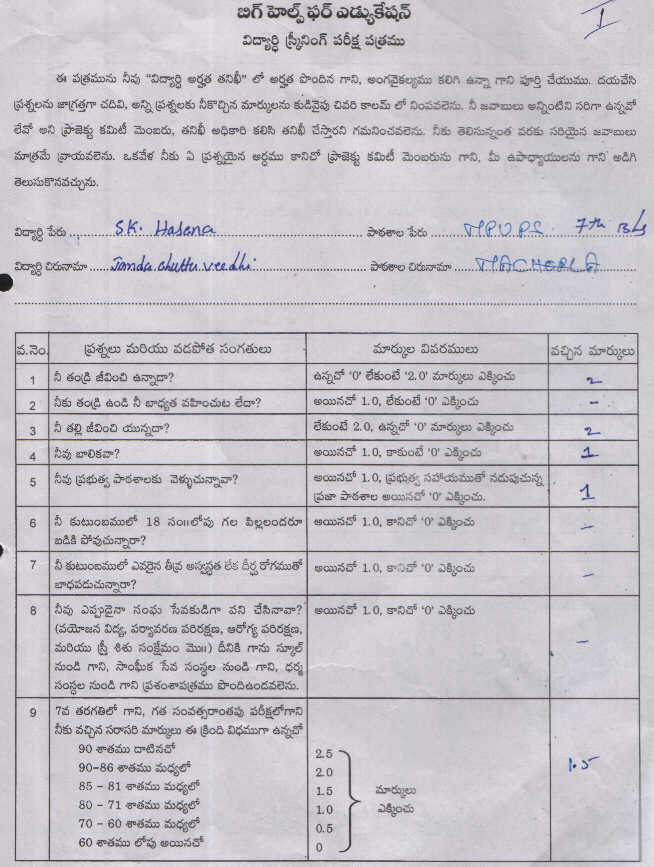 I
బిగ్ హెల్ప్ ఫర్ ఎడ్యుకేషన్
విద్యార్ధి స్క్రీనింగ్ పరీక్ష పత్రము
ఈ పత్రమును నీవు "విద్యార్ధి అర్హత తనిఖీ" లో అర్హత పొందిన గాని, అంగవైకల్యము కలిగి ఉన్నా గాని పూర్తి చేయుము. దయచేసి
ప్రశ్నలను జాగ్రత్తగా చదివి, అన్ని ప్రశ్నలకు నీకొచ్చిన మార్కులను కుడివైపు చివరి కాలమ్ లో నింపవలెను. నీ జవాబులు అన్నింటిని సరిగా ఉన్నవో
లేవో అని ప్రాజెక్టు కమిటీ మెంబరు, తనిఖీ అధికారి కలిసి తనిఖీ చేస్తారని గమనించవలెను. నీకు తెలిసున్నంత వరకు సరియైన జవాబులు
మాత్రమే వ్రాయవలెను. ఒకవేళ నీకు ఏ ప్రశ్నయైన అర్ధము కానిచో ప్రాజెక్టు కమిటీ మెంబరును గాని, మీ ఉపాధ్యాయులను గాని అడిగి
తెలుసుకొనవచ్చును.
విద్యార్ధి పేరు ... SK. Hasena పాఠశాల పేరు ... MPUPS 7th
విద్యార్ధి చిరునామా .... Janda chuttu veedhi పాఠశాల చిరునామా ... MACHERLA
వ.నెం. ప్రశ్నలు మరియు వడపోత సంగతులు మార్కుల వివరములు వచ్చిన మార్కులు
1 నీ తండ్రి జీవించి ఉన్నాడా? ఉన్నచో '0' లేకుంటే '2.0' మార్కులు ఎక్కించు 2
2 నీకు తండ్రి ఉండి నీ బాధ్యత వహించుట లేదా? అయినచో 1.0, లేకుంటే '0' ఎక్కించు -
3 నీ తల్లి జీవించి యున్నదా? లేకుంటే 2.0, ఉన్నచో '0' మార్కులు ఎక్కించు 2
4 నీవు బాలికవా? అయినచో 1.0, కాకుంటే '0' ఎక్కించు 1
5 నీవు ప్రభుత్వ పాఠశాలకు వెళ్ళుచున్నావా? అయినచో 1.0, ప్రభుత్వ సహాయముతో నడుపుచున్న
ప్రజా పాఠశాల అయినచో '0' ఎక్కించు. 1
6 నీ కుటుంబములో 18 సం॥లోపు గల పిల్లలందరూ అయినచో 1.0, కానిచో '0' ఎక్కించు
బడికి పోవుచున్నారా? -
7 నీ కుటుంబములో ఎవరైన తీవ్ర అస్వస్థత లేక దీర్ఘ రోగముతో అయినచో 1.0, కానిచో '0' ఎక్కించు
బాధపడుచున్నారా? -
8 నీవు ఎప్పుడైనా సంఘ సేవకుడిగా పని చేసినావా? అయినచో 1.0, కానిచో '0' ఎక్కించు
(వయోజన విద్య, పర్యావరణ పరిరక్షణ, ఆరోగ్య పరిరక్షణ,
మరియు స్త్రీ శిశు సంక్షేమం మొ॥) దీనికి గాను స్కూల్ -
నుండి గాని, సాంఘీక సేవ సంస్థల నుండి గాని, ధర్మ
సంస్థల నుండి గాని ప్రశంశాపత్రము పొందిఉండవలెను.
9 7వ తరగతిలో గాని, గత సంవత్సరాంతపు పరీక్షలోగాని
నీకు వచ్చిన సరాసరి మార్కులు ఈ క్రింది విధముగా ఉన్నచో
90 శాతము దాటినచో 2.5
90-86 శాతము మధ్యలో 2.0 1.5
85 - 81 శాతము మధ్యలో 1.5 మార్కులు
80 - 71 శాతము మధ్యలో 1.0 ఎక్కించు
70 - 60 శాతము మధ్యలో 0.5
60 శాతము లోపు అయినచో 0